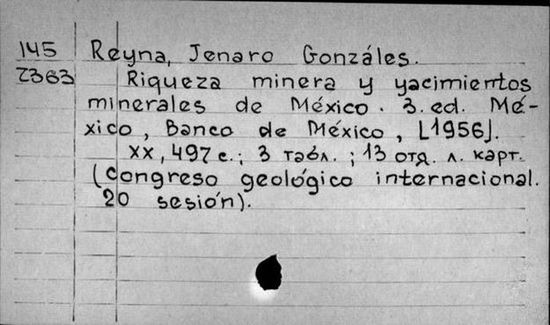 145 Reyna, Jenaro Gonzáles.
2383 Riqueza minera y yacimientos
minerales de México. 3. ed. Mé-
xico, Banco de México, [1956].
XX, 497 c.; 3 табл.; 13 отд. л. карт.
(Congreso geológico internacional.
20 sesión).